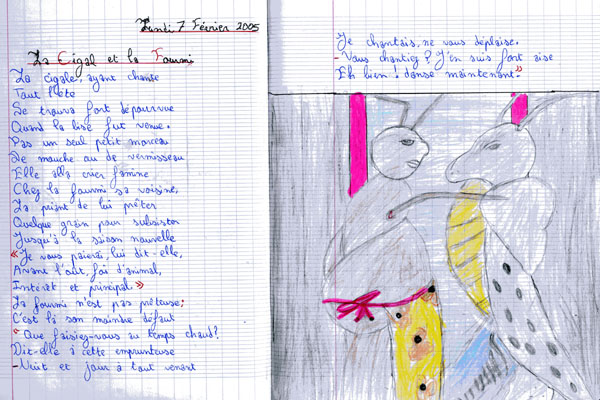 Lundi 7 Février 2005
La Cigal et la Fourmi
La cigale, ayant chanté
Tout l'été
Se trouva fort dépourvue
Quand la bise fut venue.
Pas un seul petit morceau
De mouche au de vermisseau
Elle alla crier famine
Chez la fourmi sa voisine,
La priant de lui prêter
Quelque grain pour subsister
Jusqu'à la saison nouvelle
« Je vous paierai, lui dit-elle,
Avant l'août, foi d'animal,
Interêt et principal. »
La fourmi n'est pas prêteuse;
C'est là son moindre défaut
" Que faisiez-vous au temps chaud?
Dit-elle à cette emprunteuse
- Nuit et jour a tout venant
Je chantais, ne vous déplaise.
- Vous chantiez? J'en suis fort aise
Eh bien! danse maintenant. »